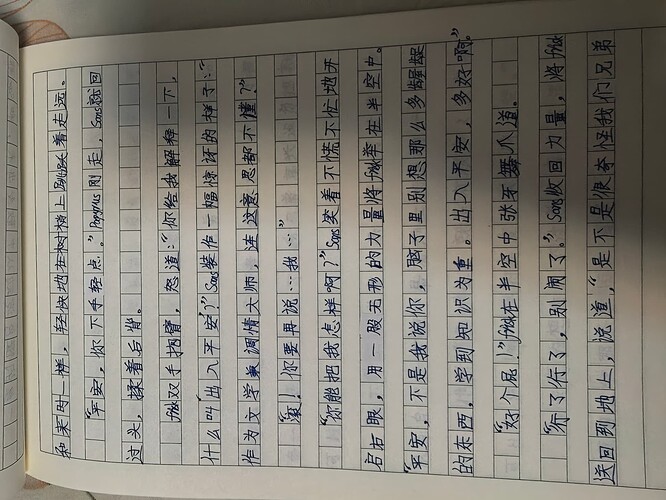 和来时一样，轻快地在树梢上跳跃着走远。
“平安，你下手轻点。”Papyrus刚走，Sans就回
过头，揉着后背。
frisk双手抱臂，怒道：“你给我解释一下，
什么叫‘出入平安’？”Sans装作一幅惊讶的样子：“
作为文学兼调情大师，连这意思都不懂？”
“滚！你要再说…我…”
“你能把我怎样啊？”Sans笑着不慌不忙地开
启右眼，用一股无形的力量将frisk举在半空中。
“平安，不是我说你，脑子里别想那么多龌龊
的东西，学到知识为重。出入平安，多好啊。”
“好个屁！”frisk在半空中张牙舞爪道。
“行了行了，别闹了。”Sans收回力量，将frisk
送回到地上，说道，“是不是很奇怪我们兄弟